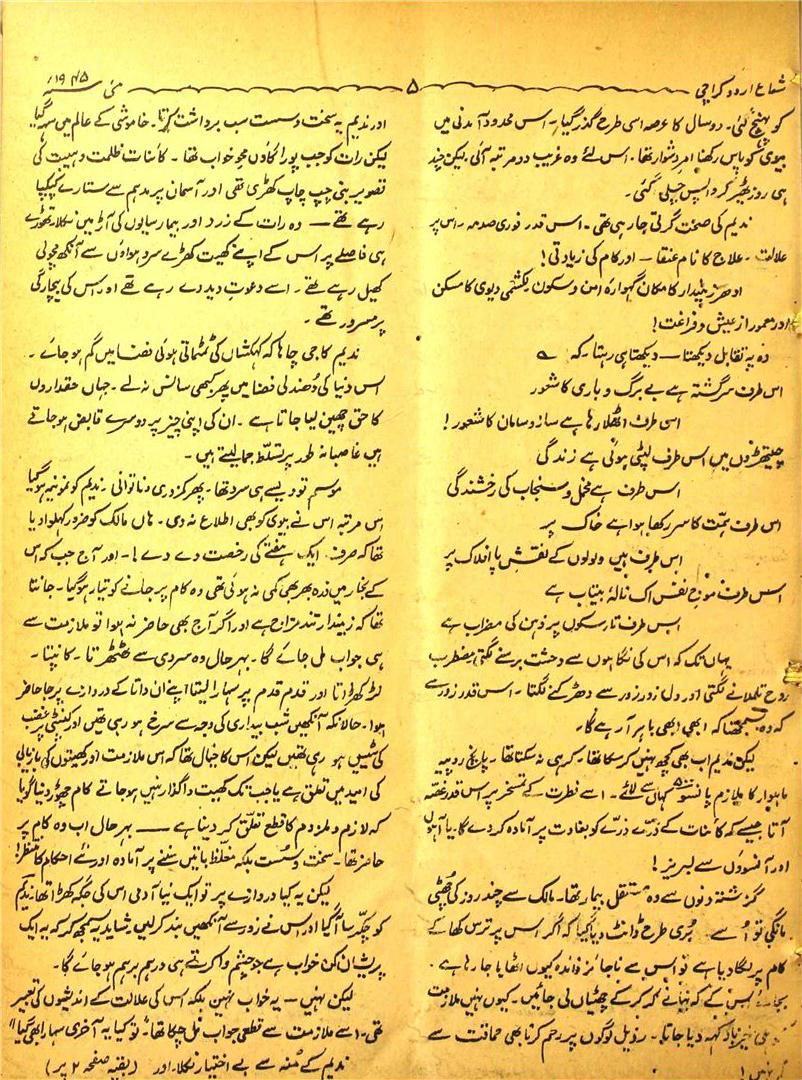 شعاع اردو کراچی
۵
مئی سنہ ۱۹۴۵ء
کو پہنچ گئی۔ دو سال کا عرصہ اسی طرح گذر گیا۔ اس محدود آمدنی میں
بیوی کو پاس رکھنا امر دشوار تھا۔ اس لئے وہ غریب دو مرتبہ آئی لیکن چند
ہی روز ٹھیر کر واپس چلی گئی۔
ندیم کی صحت گرتی جا رہی تھی۔ اس قدر فوری صدمہ۔ اس پر
علالت۔ علاج کا نام عنقا — اور کام کی زیادتی!
ادھر زمیندار کا مکان گہوارہ امن و سکون لکشمی دیوی کا مسکن
اور معمور از عیش و فراغت!
وہ یہ تقابل دیکھتا — دیکھتا ہی رہتا۔ کہ
اس طرف سرگشتہ ہے بے برگ و باری کا شعور
اس طرف اٹھلا رہا ہے ساز و سامان کا شعور!
چیتھڑوں میں اس طرف لپٹی ہوئی ہے زندگی
اس طرف ہے مخمل و سنجاب کی رخشندگی
اس طرف ہمت کا سر رکھا ہوا ہے خاک پر
اس طرف ہیں ولولوں کے نقش پا افلاک پر
اس طرف موج نفس اک نالۂ بیتاب ہے
اس طرف تار سکوں پر ذہن کی مضراب ہے
یہاں تک کہ اس کی نگاہوں سے دحشت برسنے لگتی مضطرب
روح تلملانے لگتی اور دل زور زور سے دھڑکنے لگتا۔ اس قدر زور سے
کہ وہ سمجھتا کہ ابھی ابھی باہر آ رہے گا۔
لیکن ندیم اب بھی کچھ نہیں کر سکا تھا۔ کر ہی نہ سکتا تھا۔ پانچ روپیہ
ماہوار کا ملازم پانسو ۵۰۰ کہاں سے لائے۔ اسے فطرت کے تسخر پر اس قدر غصہ
آتا جیسے کہ کائنات کے ذرّے ذرّے کو بغاوت پر آمادہ کر دے گا۔ یا آہوں
اور آنسوؤں سے لبریز!
گزشتہ دنوں سے وہ مستقل بیمار تھا۔ مالک سے چند روز کی چھٹی
مانگی تو اُسے بُری طرح ڈانٹ دیا گیا کہ اگر اس پر ترس کھا کے
کام پر لگا دیا ہے تو اس سے ناجائز فائدہ کیوں اٹھایا جا رہا ہے۔
بجائے اس کے کہ بہانے کر کر کے چھٹیاں لی جائیں۔ کیوں نہیں ملازمت
خیرباد کہہ دیا جاتا۔ رذیل لوگوں پر رحم کرنا بھی حماقت سے
اور ندیم یہ سخت و سست سب برداشت کرتا۔ خاموشی کے عالم میں سہہ گیا
لیکن رات کو جب پورا گاؤں محو خواب تھا۔ کائنات ظلمت و ہیبت کی
تصویر بنی چپ چاپ کھڑی تھی اور آسمان پر مدہم سے ستارے کپکپا
رہے تھے — وہ رات کے زرد اور بیمار سایوں کی آڑ میں نکلا۔ تھوڑے
ہی فاصلے پر اس کے اپنے کھیت کھڑے سرد ہواؤں سے آنکھ مچولی
کھیل رہے تھے۔ اسے دعوتِ دید دے رہے تھے اور اس کی بیچارگی
پر مسرور تھے۔
ندیم کا جی چاہا کہ کہکشاں کی ٹمٹماتی ہوئی فضا میں گم ہو جائے۔
اس دنیا کی دُھندلی فضا میں پھر کبھی سانس نہ لے۔ جہاں حقداروں
کا حق چھین لیا جاتا ہے۔ ان کی اپنی چیز پر دوسرے قابض ہو جاتے
ہیں غاصبانہ طور پر تسلّط جما لیتے ہیں۔
موسم تو ویسے ہی سرد تھا۔ پھر کمزوری و ناتوانی۔ ندیم کو نمونیہ ہو گیا
اس مرتبہ اس نے بیوی کو بھی اطلاع نہ دی۔ ہاں مالک کو ضرور کہلوا دیا
تھا کہ صرف ایک ہفتے کی رخصت دے دے!۔ اور آج جب کہ اس
کے بخار میں ذرہ بھر بھی کمی نہ ہوئی تھی وہ کام پر جانے کو تیار ہو گیا۔ جانتا
تھا کہ زمیندار تند مزاج ہے اور اگر آج بھی حاضر نہ ہوا تو ملازمت سے
ہی جواب مل جائے گا۔ بہرحال وہ سردی سے ٹھٹھرتا۔ کانپتا۔
لڑکھڑاتا اور قدم قدم پر سہارا لیتا اپنے ان داتا کے دروازے پر جا حاضر
ہوا۔ حالانکہ آنکھیں شب بیداری کی وجہ سے سرخ ہو رہی تھیں اور کنپٹی پر غضب
کی ٹیسیں ہو رہی تھیں لیکن اس کا خیال تھا کہ اس ملازمت اور کھیتوں کی بازیابی
کی امید میں تعلق ہے یا جب تک کھیت واگذار نہیں ہو جاتے کام چھوڑ دینا گویا
کہ لازم و ملزوم کا قطع تعلّق کر دینا ہے — بہرحال اب وہ کام پر
حاضر تھا۔ سخت و سُست بلکہ مغلّظ باتیں سننے پر آمادہ اور نئے احکام کا منتظر!
لیکن یہ کیا دروازے پر تو ایک نیا آدمی اس کی جگہ کھڑا تھا ندیم
کو چکّر سا آ گیا اور اس نے زور سے آنکھیں بند کر لیں شاید یہ سمجھ کر کہ یہ ایک
پریشان کن خواب ہے جو چشم وا کرتے ہی درہم برہم ہو جائے گا۔
لیکن نہیں — یہ خواب نہیں بلکہ اس کی علالت کے اندیشوں کی تعبیر
تھی۔ اسے ملازمت سے قطعی جواب مل چکا تھا۔ "تو کیا یہ آخری سہارا بھی گیا"
ندیم کے مُنہ سے بے اختیار نکلا۔ اور (بقیہ صفحہ ۲ پر)